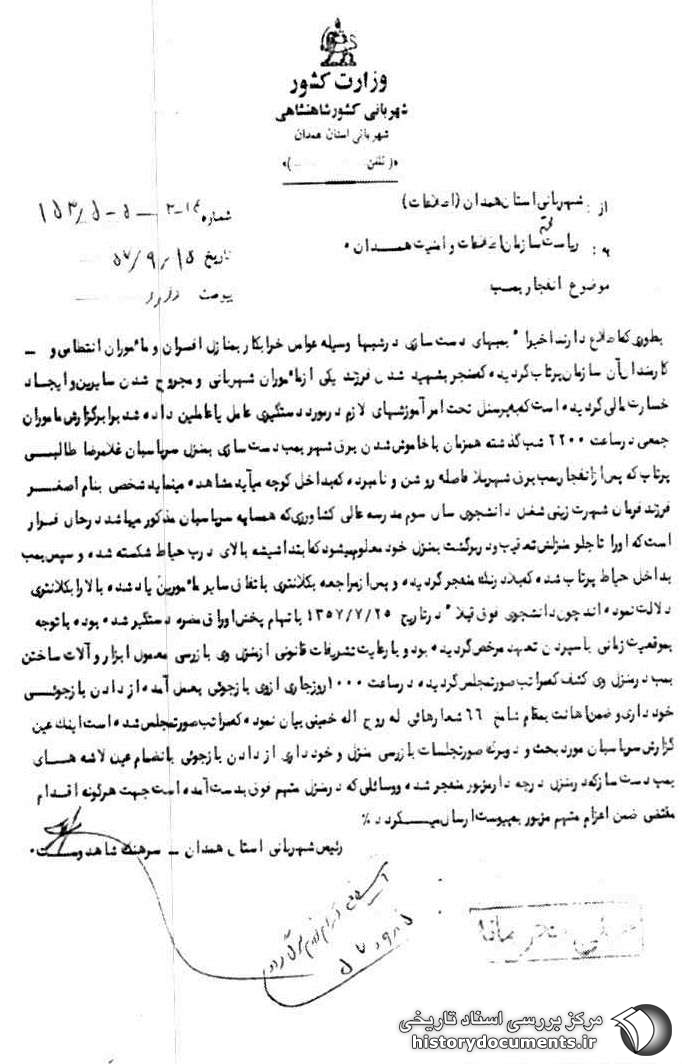 وزارت کشور
شهربانی کشور شاهنشاهی
شهربانی استان همدان
از : شهربانی استان همدان (اطلاعات)
به : ریاست محترم سازمان اطلاعات و امنیت همدان .
موضوع انفجار بمب
شماره
تاریخ ۵۷/۹/۱۵
پیوست دارد
بطوری که اطلاع دارند اخیراً بمبهای دست سازی در شبها وسیله عوامل خرابکار بمنازل افسران و مأموران انتظامی و ـ
کارمندان آن سازمان پرتاب گردیده که منجر بشهید شدن فرزند یکی از مأموران شهربانی و مجروح شدن سایرین و ایجاد
خسارت مالی گردیده است که به پرسنل تحت امر آموزشهای لازم در مورد دستگیری عامل یا عاملین داده شد برابر گزارش مأموران
جمعی در ساعت ۲۲۰۰ شب گذشته همزمان با خاموش شدن برق شهر بمب دست سازی بمنزل سرپاسبان غلامرضا طالبی
پرتاب که پس از انفجار بمب برق شهر بلافاصله روشن و نامبرده که بداخل کوچه میآید مشاهده مینماید شخصی بنام اصغر
فرزند فرمان شهرت زینی شغل دانشجوی سال سوم مدرسه عالی کشاورزی که همسایه سرپاسبان مذکور میباشد در حال فرار
است که او را تا جلو منزلش تعقیب و در برگشت بمنزل خود معلوم میشود که ابتدا شیشه بالای درب حیاط شکسته شده و سپس بمب
بداخل حیاط پرتاب شده که بلادرنگ منفجر گردیده و پس از مراجعه بکلانتری باتفاق سایر مأمورین یاد شده بالا را بکلانتری
دلالت نموده اند چون دانشجوی فوق قبلاً در تاریخ ۱۳۵۷/۷/۲۵ باتهام پخش اوراق مضره دستگیر شده بوده با توجه
بموقعیت زمانی با سپردن تعهد مرخص گردیده بود و با رعایت تشریفات قانونی از منزل وی بازرسی معمول ابزار و آلات ساختن
بمب در منزل وی کشف که مراتب صورتمجلس گردیده در ساعت ۱۰۰۰ روز جاری از وی بازجوئی بعمل آمده از دادن بازجوئی
خودداری و ضمن اهانت بمقام شامخ ۶۶ شعارهائی له روح اله خمینی بیان نموده که مراتب صورتمجلس شده است اینک عین
گزارش سرپاسبان مورد بحث و دو برگ صورتجلسات بازرسی منزل و خودداری از دادن بازجوئی بانضمام عین لاشه های
بمب دست ساز که در منزل درجه دار مزبور منفجر شده و وسائلی که در منزل متهم فوق بدست آمده است جهت هرگونه اقدام
مقتضی ضمن اعزام متهم مزبور بپیوست ارسال میگردد %
رئیس شهربانی استان همدان ـ سرهنگ شاهدوست .
مرکز بررسی اسناد تاریخی
historydocuments.ir